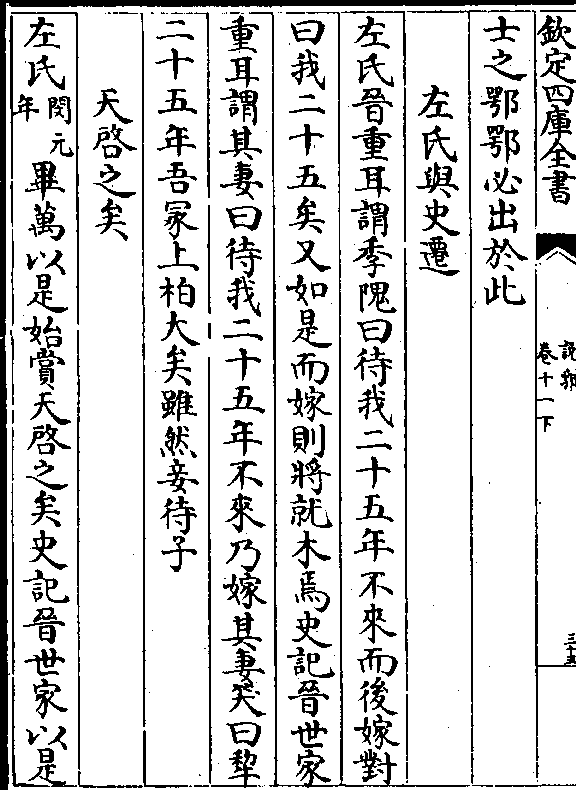 欽定四庫全書
說郛
卷十一下
三十五
士之鄂鄂必出於此
左氏與史遷
左氏晉重耳謂季隗曰待我二十五年不來而後嫁對
曰我二十五矣又如是而嫁則將就木焉史記晉世家
重耳謂其妻曰待我二十五年不來乃嫁其妻笑曰犂
二十五年吾冢上柏大矣雖然妾待子
天啓之矣
左氏閔元年畢萬以是始賞天啓之矣史記晉世家以是